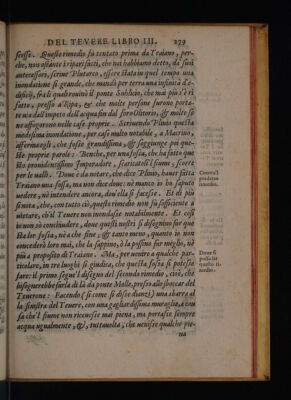 DEL TEVERE LIBRO III. 279
stesse. Questo rimedio fù tentato prima da Traiano, per-
che, non ostante i ripari fatti, che noi habbiamo detto, da suoi
antecessori, scriue Plutarco, essere stata in quel tempo una
inondatione sì grande, che mandò per terra una infinità d'e-
difici, frà li quali rouinò il ponte Sublicio, che mai più s'è ri
fatto, presso a Ripa, & che molte persone furono porta-
te via dall'impeto dell'acqua sin dal foro Olitorio, & molte se
ne affogorono nelle case proprie. Scriuendo Plinio questa
medesima inondatione, per caso molto notabile, a Macrino,
afferma egli, che fosse grandissima, & soggiunge poi que-
ste proprie parole. Benche, per una fossa, che hà fatto que
sto prouidentissimo Imperadore, scaricatosi'l fiume, scorre
per le valli. Doue è da notare, che dice Plinio, hauer fatta
Traiano una fossa, ma non dice doue: nè manco io hò saputo
vedere, nè intendere ancora, doue ella si facesse. Et di più
si nota, che, con tutto ciò, questo rimedio non fù sufficiente a
vietare, ch'il Teuere non inondasse notabilmente. Et così
io non sò conchiudere, doue questi nostri si disegnino far que
sta lor fossa, nè a che fine, & tanto meno, quanto io non
concederò loro mai, che la sappino, ò la possino far meglio, nè
più a proposito di Traiano. Ma, per venire a qualche par-
ticolare, in tre luoghi si giudica, che questa fossa si potesse
fare: il primo segue'l disegno del secondo rimedio, cioè, che
bisognerebbe farla di là da ponte Molle, presso allo sboccar del
Teuerone: Facendo (sì come si disse dianzi) una sbarra al
la sinistra del Teuere, con una gagliardissima muraglia, a cau
sa che'l fiume non riceuesse mai piena, ma portasse sempre
acqua ugualmente, &, tuttauolta, che uenisse qualche pie-
na
Contra'l
predetto
rimedio.
Doue si
possa far
questo ri-
medio.